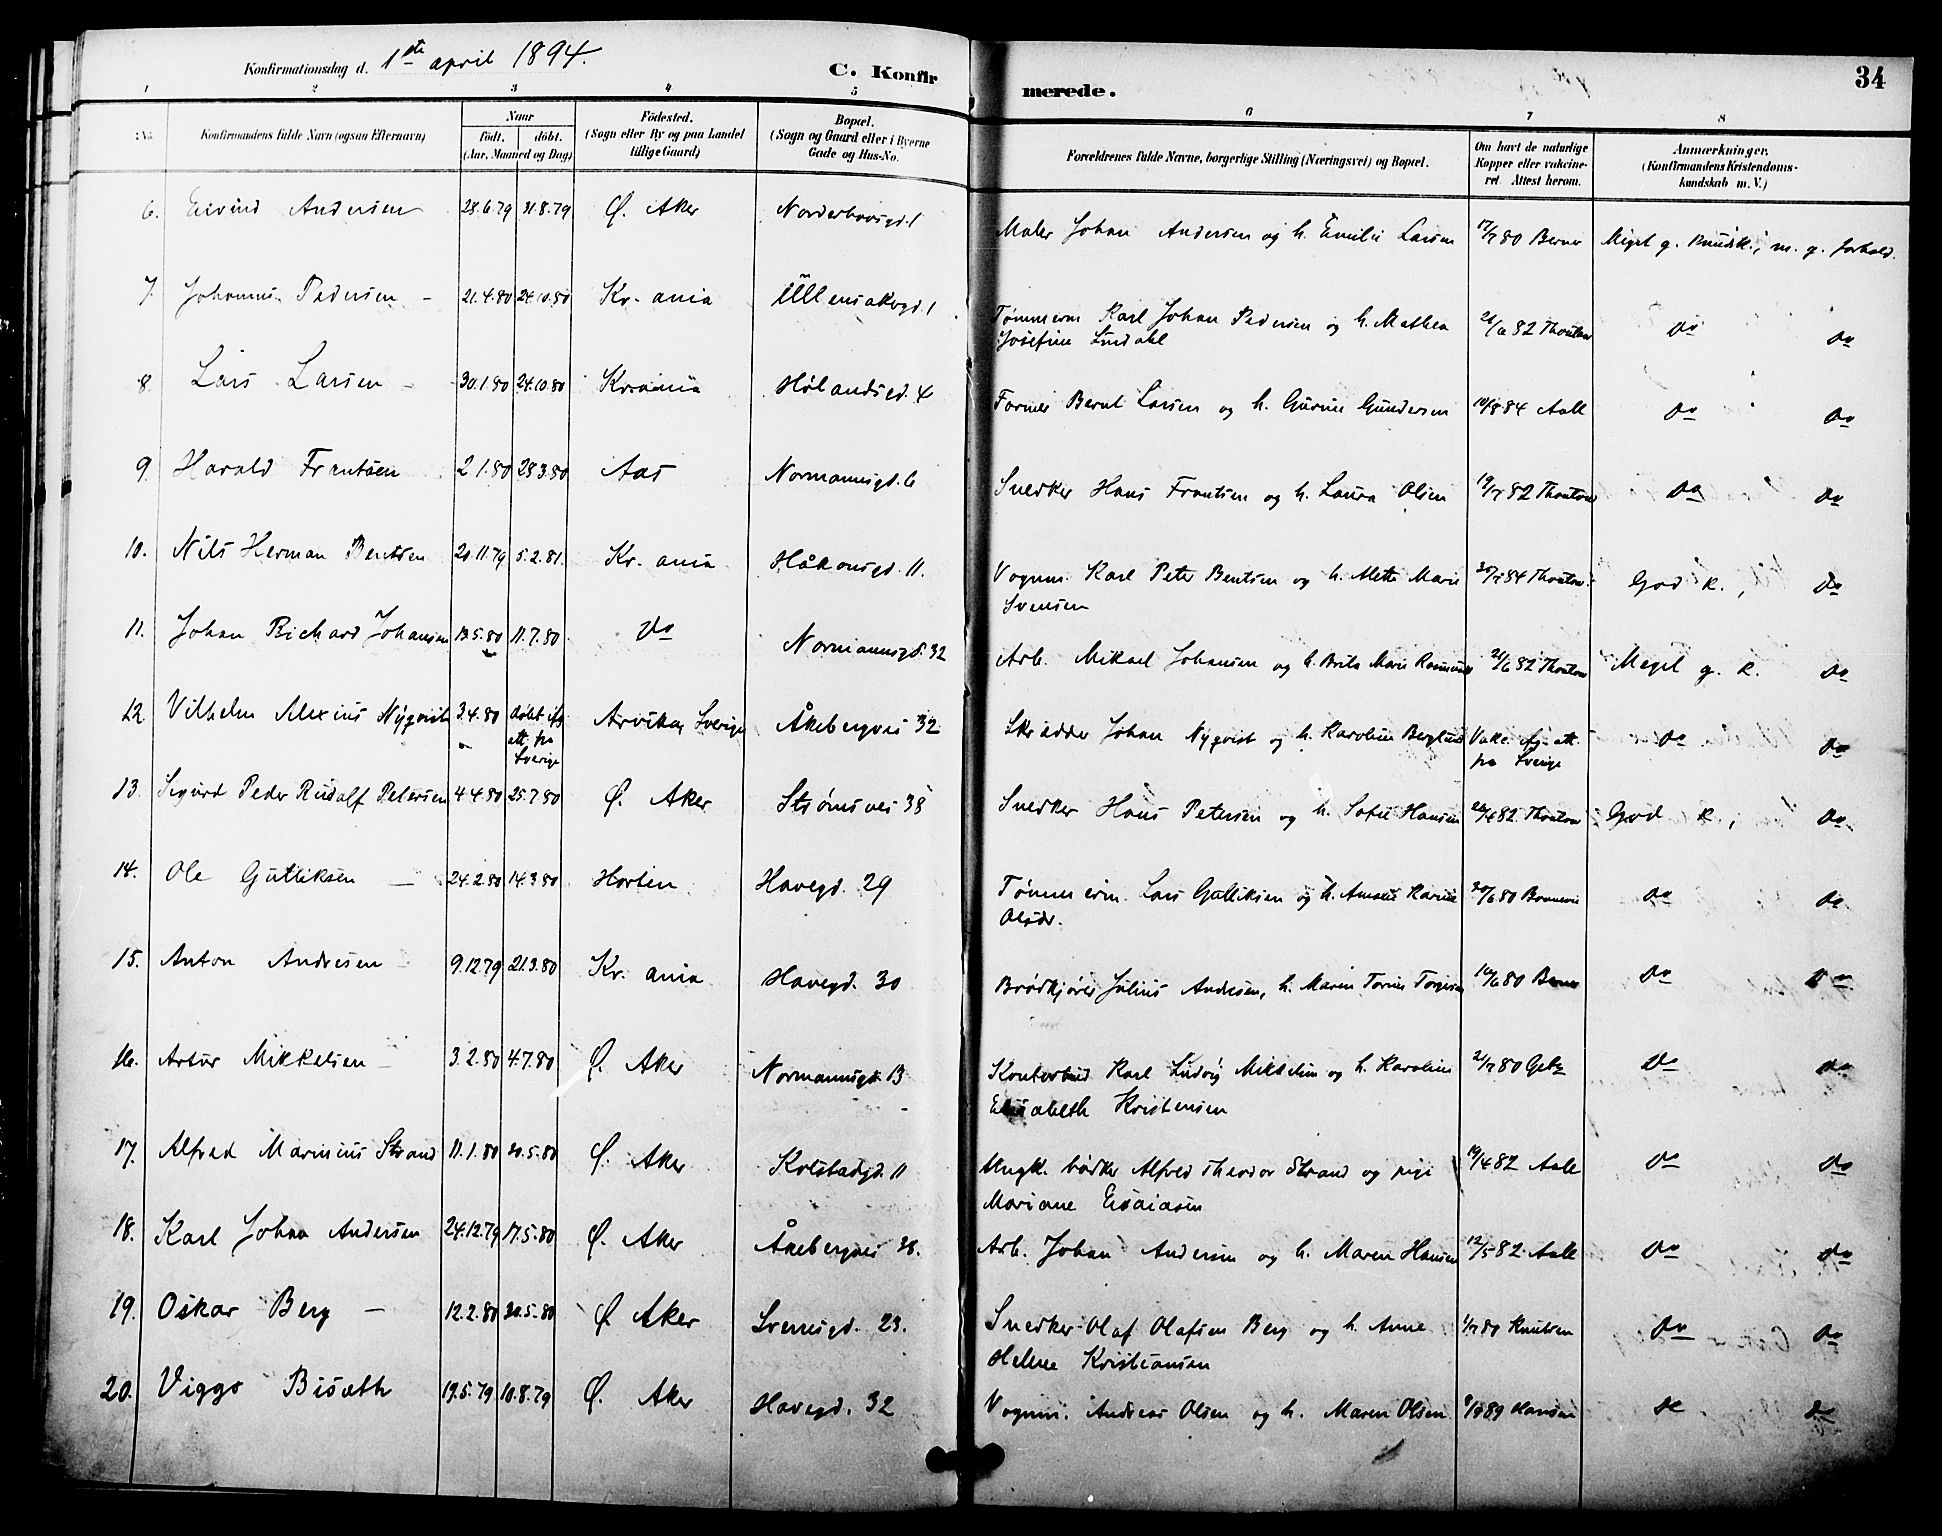 Konfirmationsdag d. 1ste april 1894.
C. Konfirmerede.
34
1 2 3 4 5 6 7 8
No.
Konfirmandens fulde Navn (ogsaa Efternavn)
Naar
født. døbt.
(Aar, Maaned og Dag)
Fødested.
(Sogn eller By og paa Landet
tillige Gaard)
Bopæl.
(Sogn og Gaard eller i Byerne
Gade og Hus-No.
Forældrenes fulde Navne, borgerlige Stilling (Næringsvei) og Bopæl.
Om havt de naturlige
Kopper eller vakcine-
ret. Attest herom.
Anmærkninger.
(Konfirmandens Kristendoms-
kundskab m. V.)
6. Eivind Andersen 28.6.79 31.8.79 Ø. Aker Norderhovsgd. 1 Maler Johan Andersen og h. Emilie Larsen 17/7 80 Berner Meget g. kundsk., m. g. forhold.
7. Johannes Pedersen - 21.4.80 24.10.80 Kr. ania Ullensakergd. 1 Tømmerm Karl Johan Pedersen og h. Mathea
Josefine Lindahl 21/6 82 Thoutow Do Do
8. Lars Larsen - 30.1.80 24.10.80 Kr.ania Hølandsgd. 4 Former Bernt Larsen og h. Gurine Gundersen 10/8 84 Aall Do Do
9. Harald Frantsen 2.1.80 28.3.80 Aas Normannsgd. 6 Snedker Hans Frantsen og h. Laura Olsen 19/7 82 Thoutow Do Do
10. Nils Herman Bentsen 20.11.79 5.2.81. Kr. ania Håkonsgd. 11. Vognm. Karl Peter Bentsen og h. Alette Marie
Svensen 30/7 84 Thoutow God k., Do
11. Johan Richard Johansen 13.5.80 11.7.80 Do Normannsgd. 32 Arb. Mikael Johansen og h. Brite Marie 21/6 82 Thoutow Meget g. k. Do
12. Vilhelm Alexius Nyqvist 3.4.80 døbt ifg.
att. fra
Sverige Arvika, Sverige Åkebergvei 32 Skrædder Johan Nyqvist og h. Karoline Berglund Vakc. ifg. att.
fra Sverige Do Do
13. Sigurd Peder Rudolf Petersen 4.4.80 25.7.80 Ø. Aker Strømsvei 38 Snedker Hans Petersen og h. Sofie Hansen 82 Thoutow God k., Do
14. Ole Gulliksen - 24.2.80 14.3.80 Horten Havegd. 29 Tømmerm. Lars Gulliksen og h. Karine
Olsdr. 20/6 80 Do Do
15. Anton Andresen - 9.12.79 21.3.80 Kr. ania Havegd. 30 Brødkjører Julius Andresen, h. Maren 16/6 80 Berner Do Do
16. Artur Mikkelsen - 3.2.80 4.7.80 Ø. Aker Normannsgd. 13 Kontorbud Karl Ludvig Mikkelsen og h. Karoline
Elisabeth Kristensen 21/7 80 Getz Do Do
17. Alfred Marinius Strand 11.1.80 20.5.80 Ø. Aker Kolstadgd. 11 Ungk. bødker Alfred Theodor Strand og pige
Mariane Esaiasen 19/4 82 Aall Do Do
18. Karl Johan Andersen 24.12.79 17.5.80 Ø. Aker Åkebergvei 38. Arb. Johan Andersen og h. Maren Hansen 12/5 82 Aall Do Do
19. Oskar Berg - 12.2.80 30.5.80 Ø. Aker Sverresgd. 23. Snedker Olaf Olafsen Berg og h. Anne
Helene Kristiansen 1/7 80 Knutsen Do Do
20. Viggo Bisæth 19.5.79 10.8.79 Ø. Aker Havegd. 32 Vognm. Andreas Olsen og h. Maren Olsen 89 Hansen Do Do